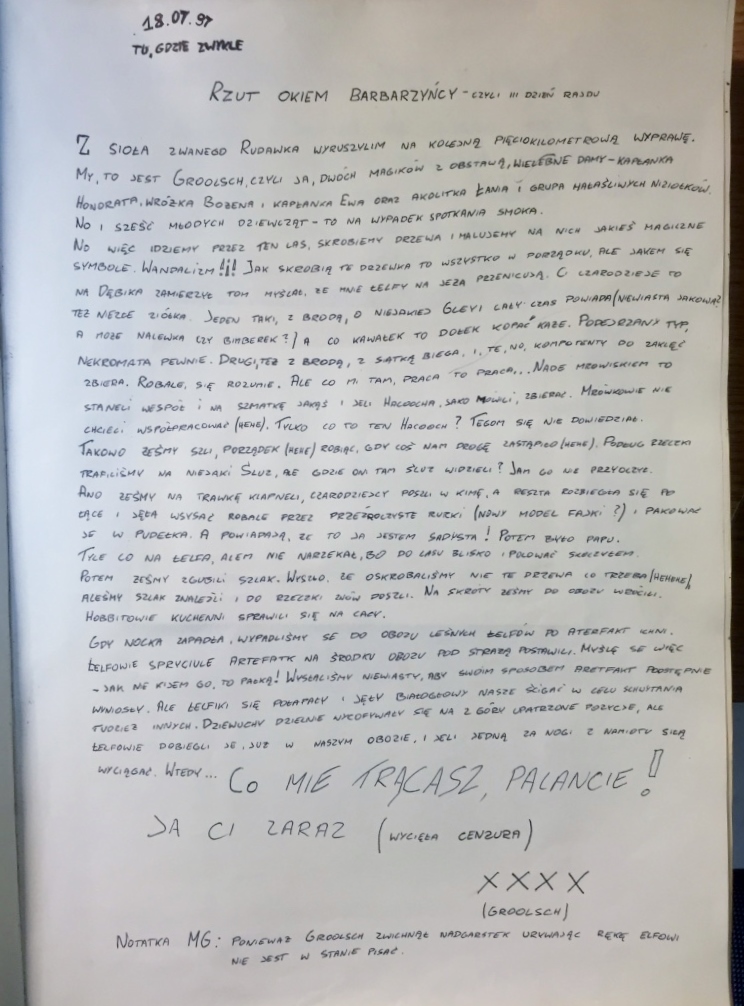 18.07.97
TU, GDZIE ZWYKLE
RZUT OKIEM BARBARZYŃCY - CZYLI III DZIEŃ RAJDU
Z SIOŁA ZWANEGO RUDAWKA WYRUSZYLIM NA KOLEJNĄ PIĘCIOKILOMETROWĄ WYPRAWĘ.
MY, TO JEST GROOLSCH, CZYLI JA, DWÓCH MAGIKÓW Z OBSTAWĄ, WIELEBNE DAMY - KAPŁANKA
HONORATA, WRÓŻKA BOŻENA I KAPŁANKA EWA ORAZ AKOLITKA ŁANIA I GRUPA HAŁAŚLIWYCH NIZIOŁKÓW.
NO I SZEŚĆ MŁODYCH DZIEWCZĄT - TO NA WYPADEK SPOTKANIA SMOKA.
NO WIĘC IDZIEMY PRZEZ TEN LAS, SKROBIEMY DRZEWA I MALUJEMY NA NICH JAKIEŚ MAGICZNE
SYMBOLE. WANDALIZM!¡! JAK SKROBIĄ TE DRZEWKA TO WSZYSTKO W PORZĄDKU, ALE JAKEM SIĘ
NA DĘBIKA ZAMIERZYŁ TOM MYŚLAŁ, ŻE MNIE ŁELFY NA JEŻA PRZENICUJĄ. CI CZARODZIEJE TO
TEŻ NIEZŁE ZIÓŁKA. JEDEN TAKI, Z BRODĄ, O NIEJAKIEJ GLEYI CAŁY CZAS POWIADA (NIEWIASTA JAKOWAŚ
A MOŻE NALEWKA CZY BIMBEREK?) A CO KAWAŁEK TO DOŁEK KOPAĆ KAŻE. PODEJRZANY TYP,
NEKROMATA PEWNIE. DRUGI, TEŻ Z BRODĄ, Z SIATKĄ BIEGA, I, TE, NO, KOMPOTENTY DO ZAKLĘĆ
ZBIERA. ROBALE, SIĘ ROZUMIE. ALE CO MI TAM, PRACA TO PRACA... NADE MROWISKIEM TO
STANELI WESPÓŁ I NA SZMATKĘ JAKĄŚ I JELI HACOOCHA, JAKO MÓWILI, ZBIERAĆ. MRÓWKOWIE NIE
CHCIELI WSPÓŁPRACOWAĆ (HEHE). TYLKO CO TO TEN HACOOCH? TEGOM SIĘ NIE DOWIEDZIAŁ.
TAKOWO ŻEŚMY SZLI, PORZĄDEK (HEHE) ROBIĄC, GDY COŚ NAM DROGĘ ZASTĄPIŁO (HEHE). PODŁUG RZECZKI
TRAFILIŚMY NA NIEJAKI ŚLUZ, ALE GDZIE ONI TAM ŚLUZ WIDZIELI? JAM GO NIE PRZYUCZYŁ.
ANO ŻEŚMY NA TRAWKĘ KLAPNELI, CZARODZIEJCY POSZLI W KIMĘ, A RESZTA ROZBIEGŁA SIĘ PO
ŁĄCE I JĘŁA WSYSAĆ ROBALE PRZEZ PRZEŹROCZYSTE RURKI (NOWY MODEL FAJKI?) I PAKOWAĆ
JE W PUDEŁKA. A POWIADAJĄ, ŻE TO JA JESTEM SADYSTA! POTEM BYŁO PAPU.
TYLE CO NA ŁELFA, ALEM NIE NARZEKAŁ, BO DO LASU BLISKO I POLOWAĆ SKOCZYŁEM.
POTEM ŻEŚMY ZGUBILI SZLAK. WYSZŁO, ŻE OSKROBALIŚMY NIE TE DRZEWA CO TRZEBA (HEHEHE),
ALEŚMY SZLAK ZNALEŹLI I DO RZECZKI ZNÓW DOSZLI. NA SKRÓTY ŻEŚMY DO OBOZU WRÓCILI.
HOBBITOWIE KUCHENNI SPRAWILI SIĘ NA CACY.
GDY NOCKA ZAPADŁA, WYPADLIŚMY SE DO OBOZU LEŚNYCH ŁELFÓW PO ATERFAKT ICHNI.
ŁELFOWIE SPRYCIULE ARTEFATK NA ŚRODKU OBOZU POD STRAŻĄ POSTAWILI. MYŚLĘ SE WIĘC
- JAK NIE KIJEM GO, TO PAŁKĄ! WYSŁALIŚMY NIEWIASTY, ABY SWOIM SPOSOBEM ARETFAKT PODSTĘPNIE
WYNIOSŁY. ALE ŁELFIKI SIĘ POŁAPAŁY I JĘŁY BIAŁOGŁOWY NASZE ŚCIGAĆ W CELU SCHWYTANIA
TUDZIEŻ INNYCH. DZIEWUCHY DZIELNIE WYCOFYWAŁY SIĘ NA Z GÓRY UPATRZONE POZYCJE, ALE
ŁELFOWIE DOBIEGLI JE, JUŻ W NASZYM OBOZIE, I JELI JEDNĄ ZA NOGI Z NAMIOTU SIŁĄ
WYCIĄGAĆ. WTEDY... CO MIE TRĄCASZ, PALANCIE!
JA CI ZARAZ (WYCIĘŁA CENZURA)
XXXX
(GROOLSCH)
NOTATKA MG: PONIEWAŻ GROOLSCH ZWICHNĄŁ NADGARSTEK URYWAJĄC RĘKĘ ELFOWI
NIE JEST W STANIE PISAĆ.